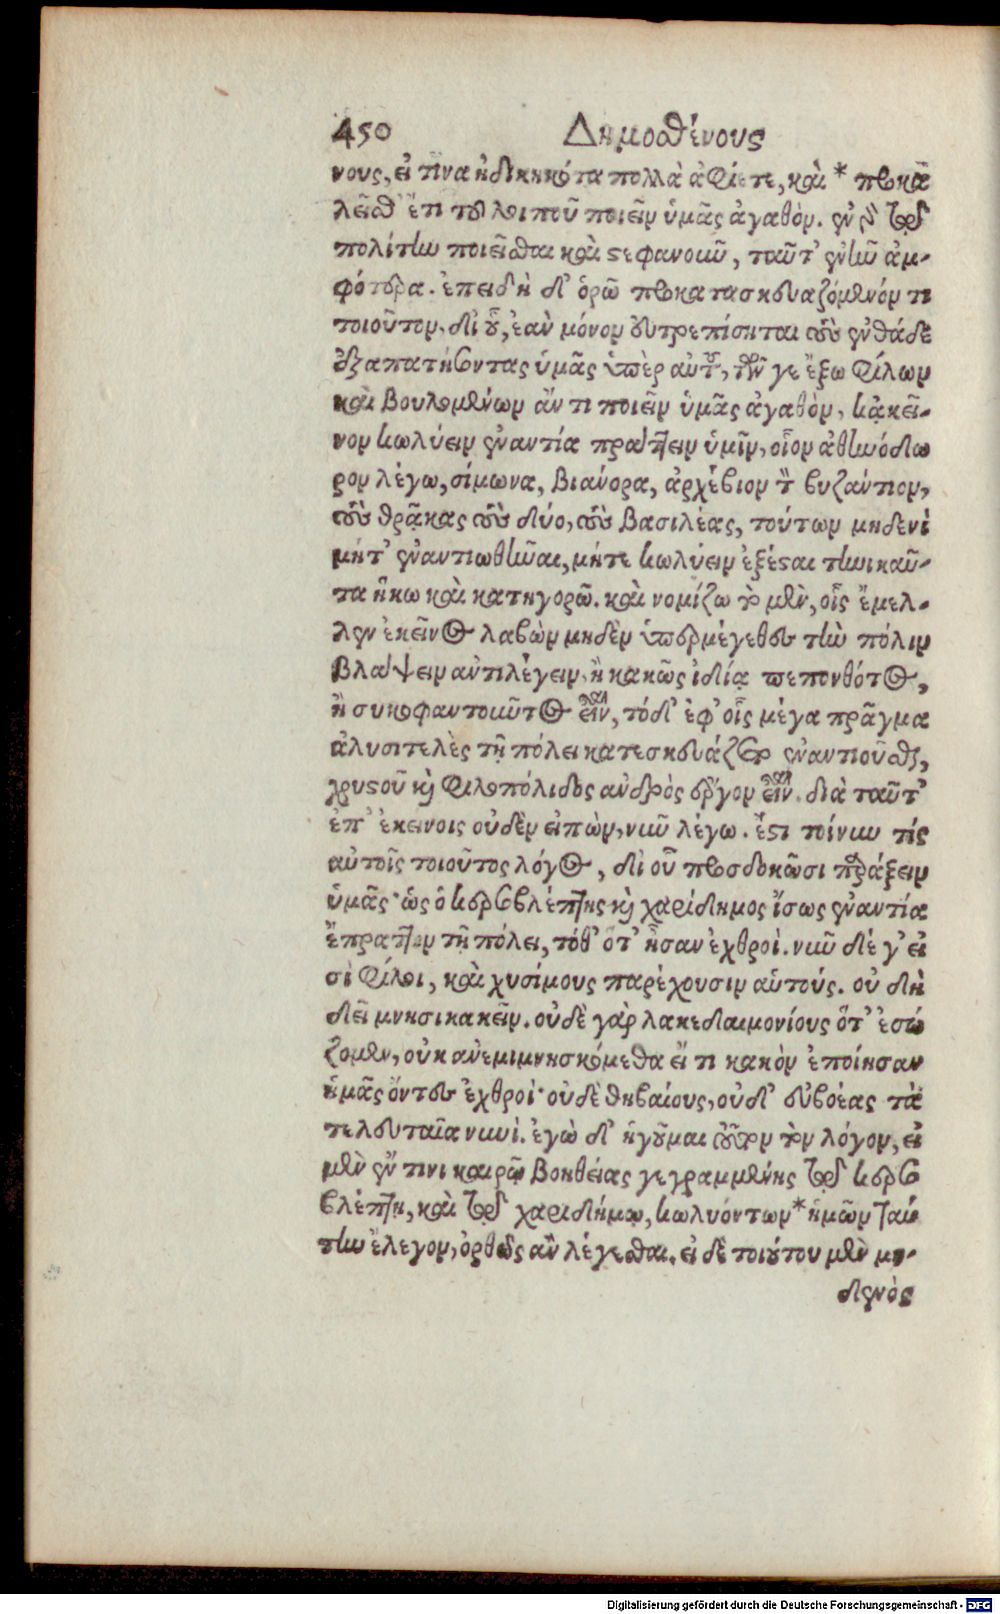 450 Δημοσθένους
νους, εἴ τινα ἠδικηκότα πολλὰ ἀφίετε, καὶ * προκα
λεῖσθ' ἔτι τοῦ λοιποῦ ποιεῖν ὑμᾶς ἀγαθόν. ἐν γὰρ τῷ
πολίτην ποιεῖσθαι καὶ στεφανοῦν, ταῦτ' ἐνῆν ἀμ-
φότερα. ἐπειδὴ δ' ὁρῶ προκατασκευαζόμενόν τι
τοιοῦτον, δι' οὗ, ἐὰν μόνον εὐτρεπίσηται τοὺς ἐνθάδε
ἐξαπατήσοντας ὑμᾶς ὑπὲρ αὐτοῦ, τῶν γε ἔξω φίλων
καὶ βουλομένων ἄν τι ποιεῖν ὑμᾶς ἀγαθὸν, κἀκεῖ-
νον κωλύειν ἐναντία πράττειν ὑμῖν, οἷον ἀθηνόδω
ρον λέγω, σίμωνα, βιάνορα, ἀρχέβιον τὸν βυζάντιον,
τοὺς θρᾷκας τοὺς δύο, τοὺς βασιλέας, τούτων μηδενὶ
μήτ' ἐναντιωθῆναι, μήτε κωλύειν ἐξέσται τηνικαῦ-
τα ἥκω καὶ κατηγορῶ. καὶ νομίζω τὸ μὲν, οἷς ἔμελ-
λεν ἐκεῖνος λαβὼν μηδὲν ὑπερμέγεθες τὴν πόλιν
βλάψειν ἀντιλέγειν, ἢ κακῶς ἰδίᾳ πεπονθότος,
ἢ συκοφαντοῦντος εἶναι, τὸ δ' ἐφ' οἷς μέγα πρᾶγμα
ἀλυσιτελὲς τῇ πόλει κατεσκευάζετο ἐναντιοῦσθαι,
χρηστοῦ καὶ φιλοπόλιδος ἀνδρὸς ἔργον εἶναι. διὰ ταῦτ'
ἐπ' ἐκείνοις οὐδὲν εἰπὼν, νῦν λέγω. ἔστι τοίνυν τίς
αὐτοῖς τοιοῦτος λόγος, δι' οὗ προσδοκῶσι παράξειν
ὑμᾶς· ὡς ὁ κερσοβλέπτης καὶ χαρίδημος ἴσως ἐναντία
ἔπραττον τῇ πόλει, τόθ' ὅτ' ἦσαν ἐχθροὶ. νῦν δέ γ' εἰ
σὶ φίλοι, καὶ χρησίμους παρέχουσιν αὑτούς. οὐ δὴ
δεῖ μνησικακεῖν. οὐδὲ γὰρ λακεδαιμονίους ὅτ' ἐσώ
ζομεν, οὐκ ἀνεμιμνησκόμεθα εἴ τι κακὸν ἐποίησαν
ἡμᾶς ὄντες ἐχθροί· οὐδὲ θηβαίους, οὐδ' εὐβοέας τὰ
τελευταῖα νυνί. ἐγὼ δ' ἡγοῦμαι τοῦτον τὸν λόγον, εἰ
μὲν ἔν τινι καιρῷ βοηθείας γεγραμμένης τῷ κερσο
βλέπτῃ, καὶ τῷ χαριδήμῳ, κωλυόντων * ἡμῶν ταύ
την ἔλεγον, ὀρθῶς ἂν λέγεσθαι. εἰ δὲ τοιούτου μὲν μη-
δενὸς
Digitalisierung gefördert durch die Deutsche Forschungsgemeinschaft - DFG